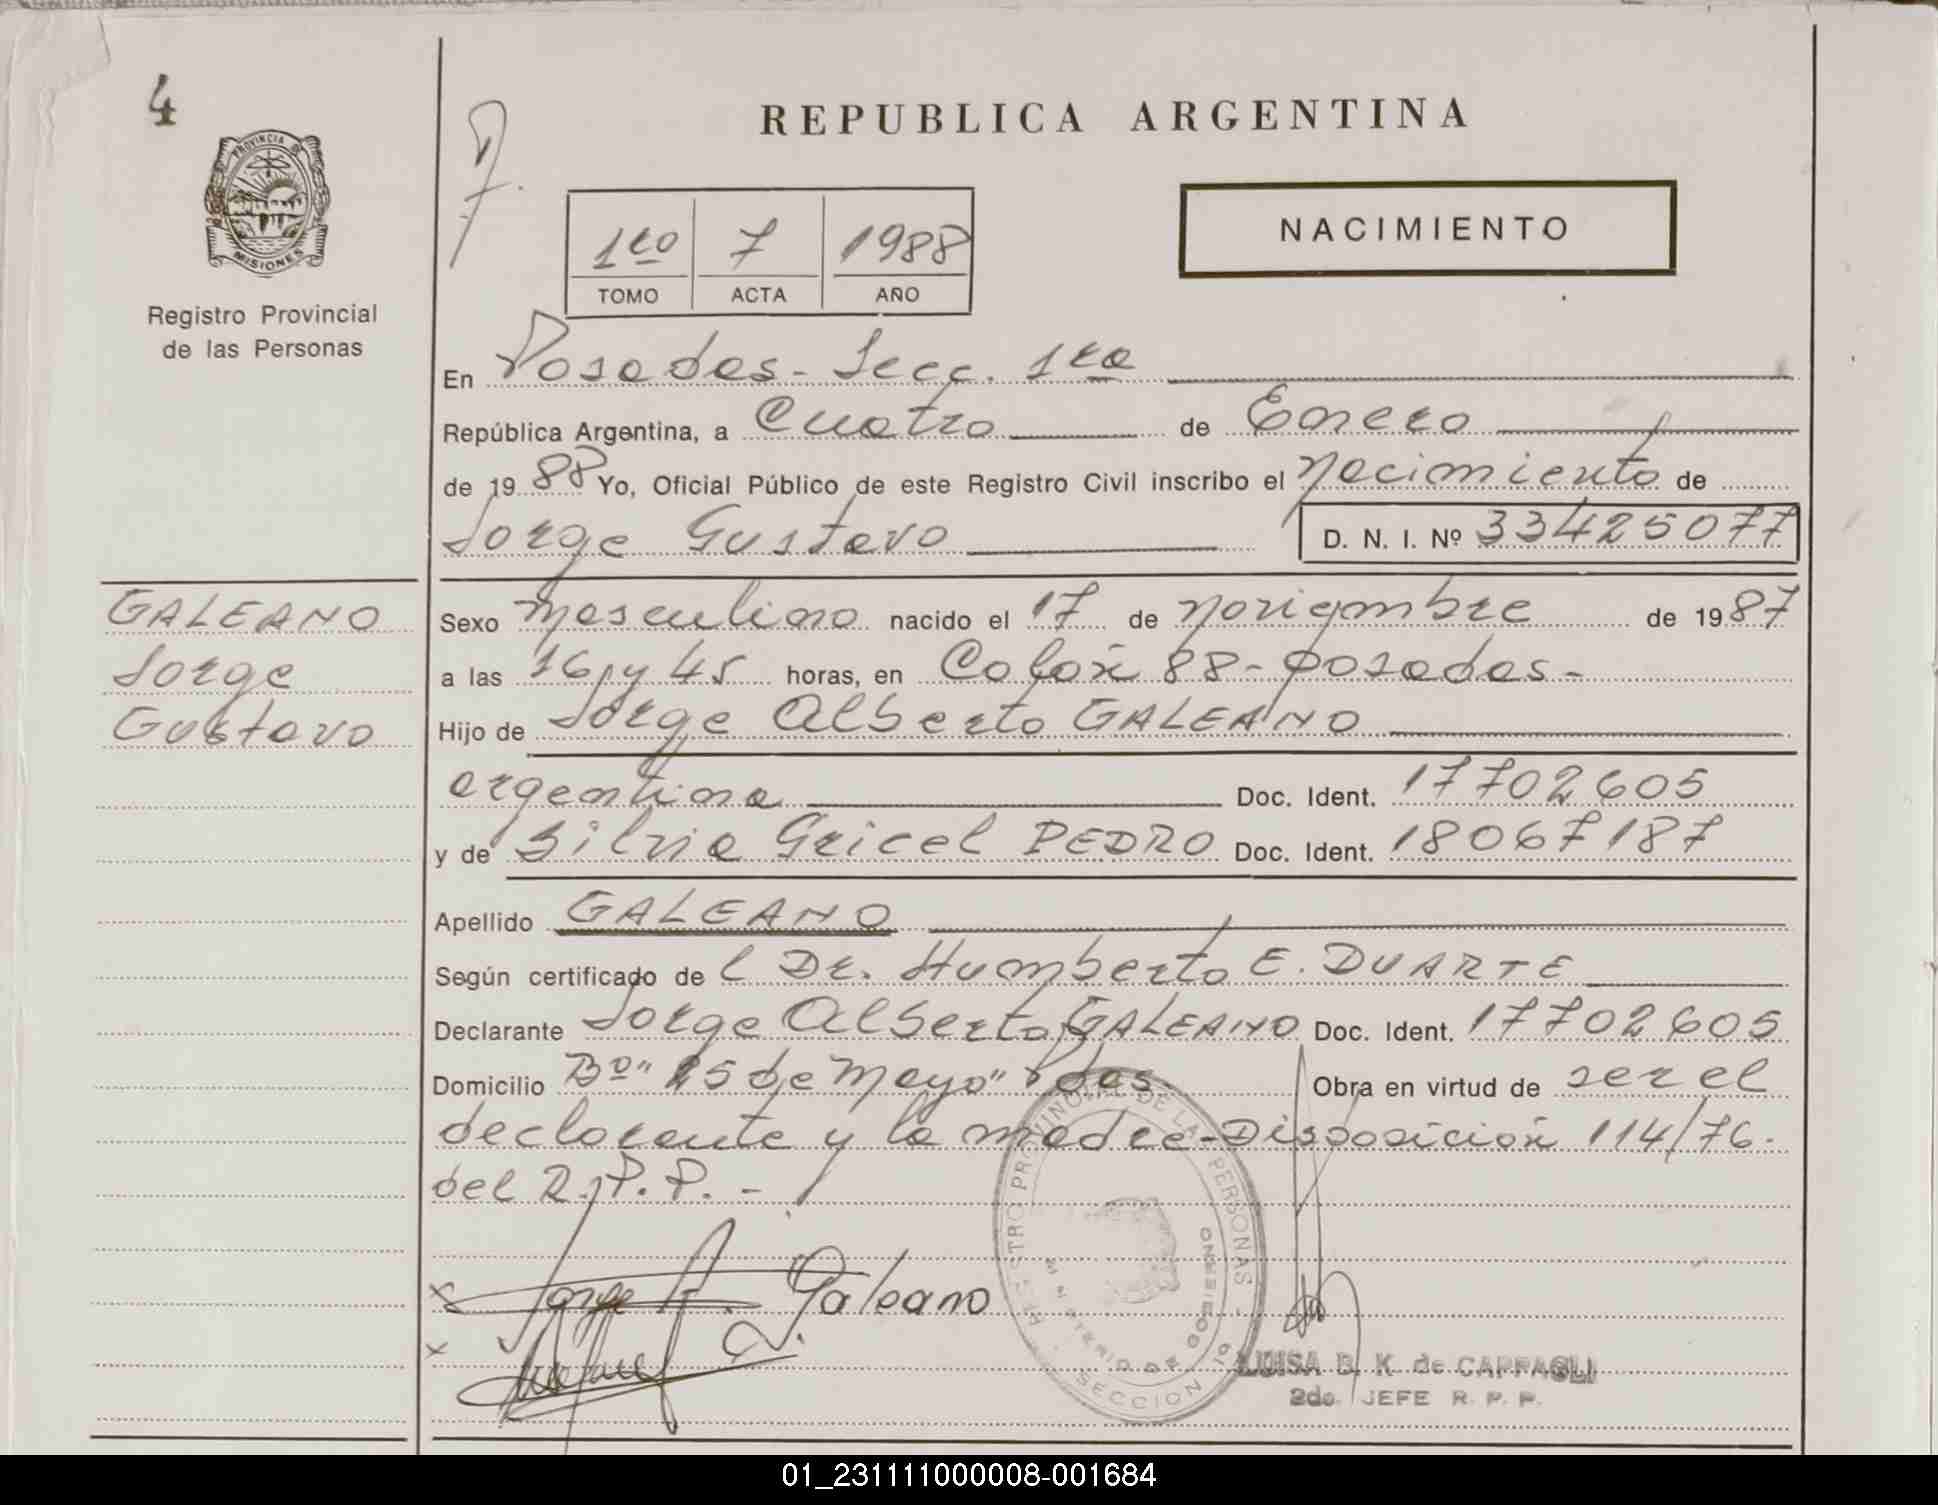 4
REPUBLICA ARGENTINA
7.
PROVINCIA DE
MISIONES
1ro 7 1988
TOMO ACTA AÑO
NACIMIENTO
Registro Provincial
de las Personas
En Posadas - Secc. 1ra
República Argentina, a Cuatro de Enero
de 1988 Yo, Oficial Público de este Registro Civil inscribo el nacimiento de
Jorge Gustavo D. N. I. Nº 33425077
GALEANO
Jorge
Gustavo
Sexo masculino nacido el 17 de noviembre de 1987
a las 16, y 45 horas, en Colón 88 - posadas -
Hijo de Jorge Alberto GALEANO
argentina Doc. Ident. 17702605
y de Silvia Gricel PEDRO Doc. Ident. 18067187
Apellido GALEANO
Según certificado de l Dr. Humberto E. DUARTE
Declarante Jorge Alberto GALEANO Doc. Ident. 17702605
Domicilio Bº "25 de Mayo" Pdas. Obra en virtud de ser el
declarante y la madre - Disposición 114/76.
del R.P.P. -
REGISTRO PROVINCIAL DE LAS PERSONAS -
MINISTERIO DE GOBIERNO
SECCION 1º
x Jorge A. Galeano
x
LUISA B. K. de CAPPAGLI
2do. JEFE R. P. P.
01_231111000008-001684